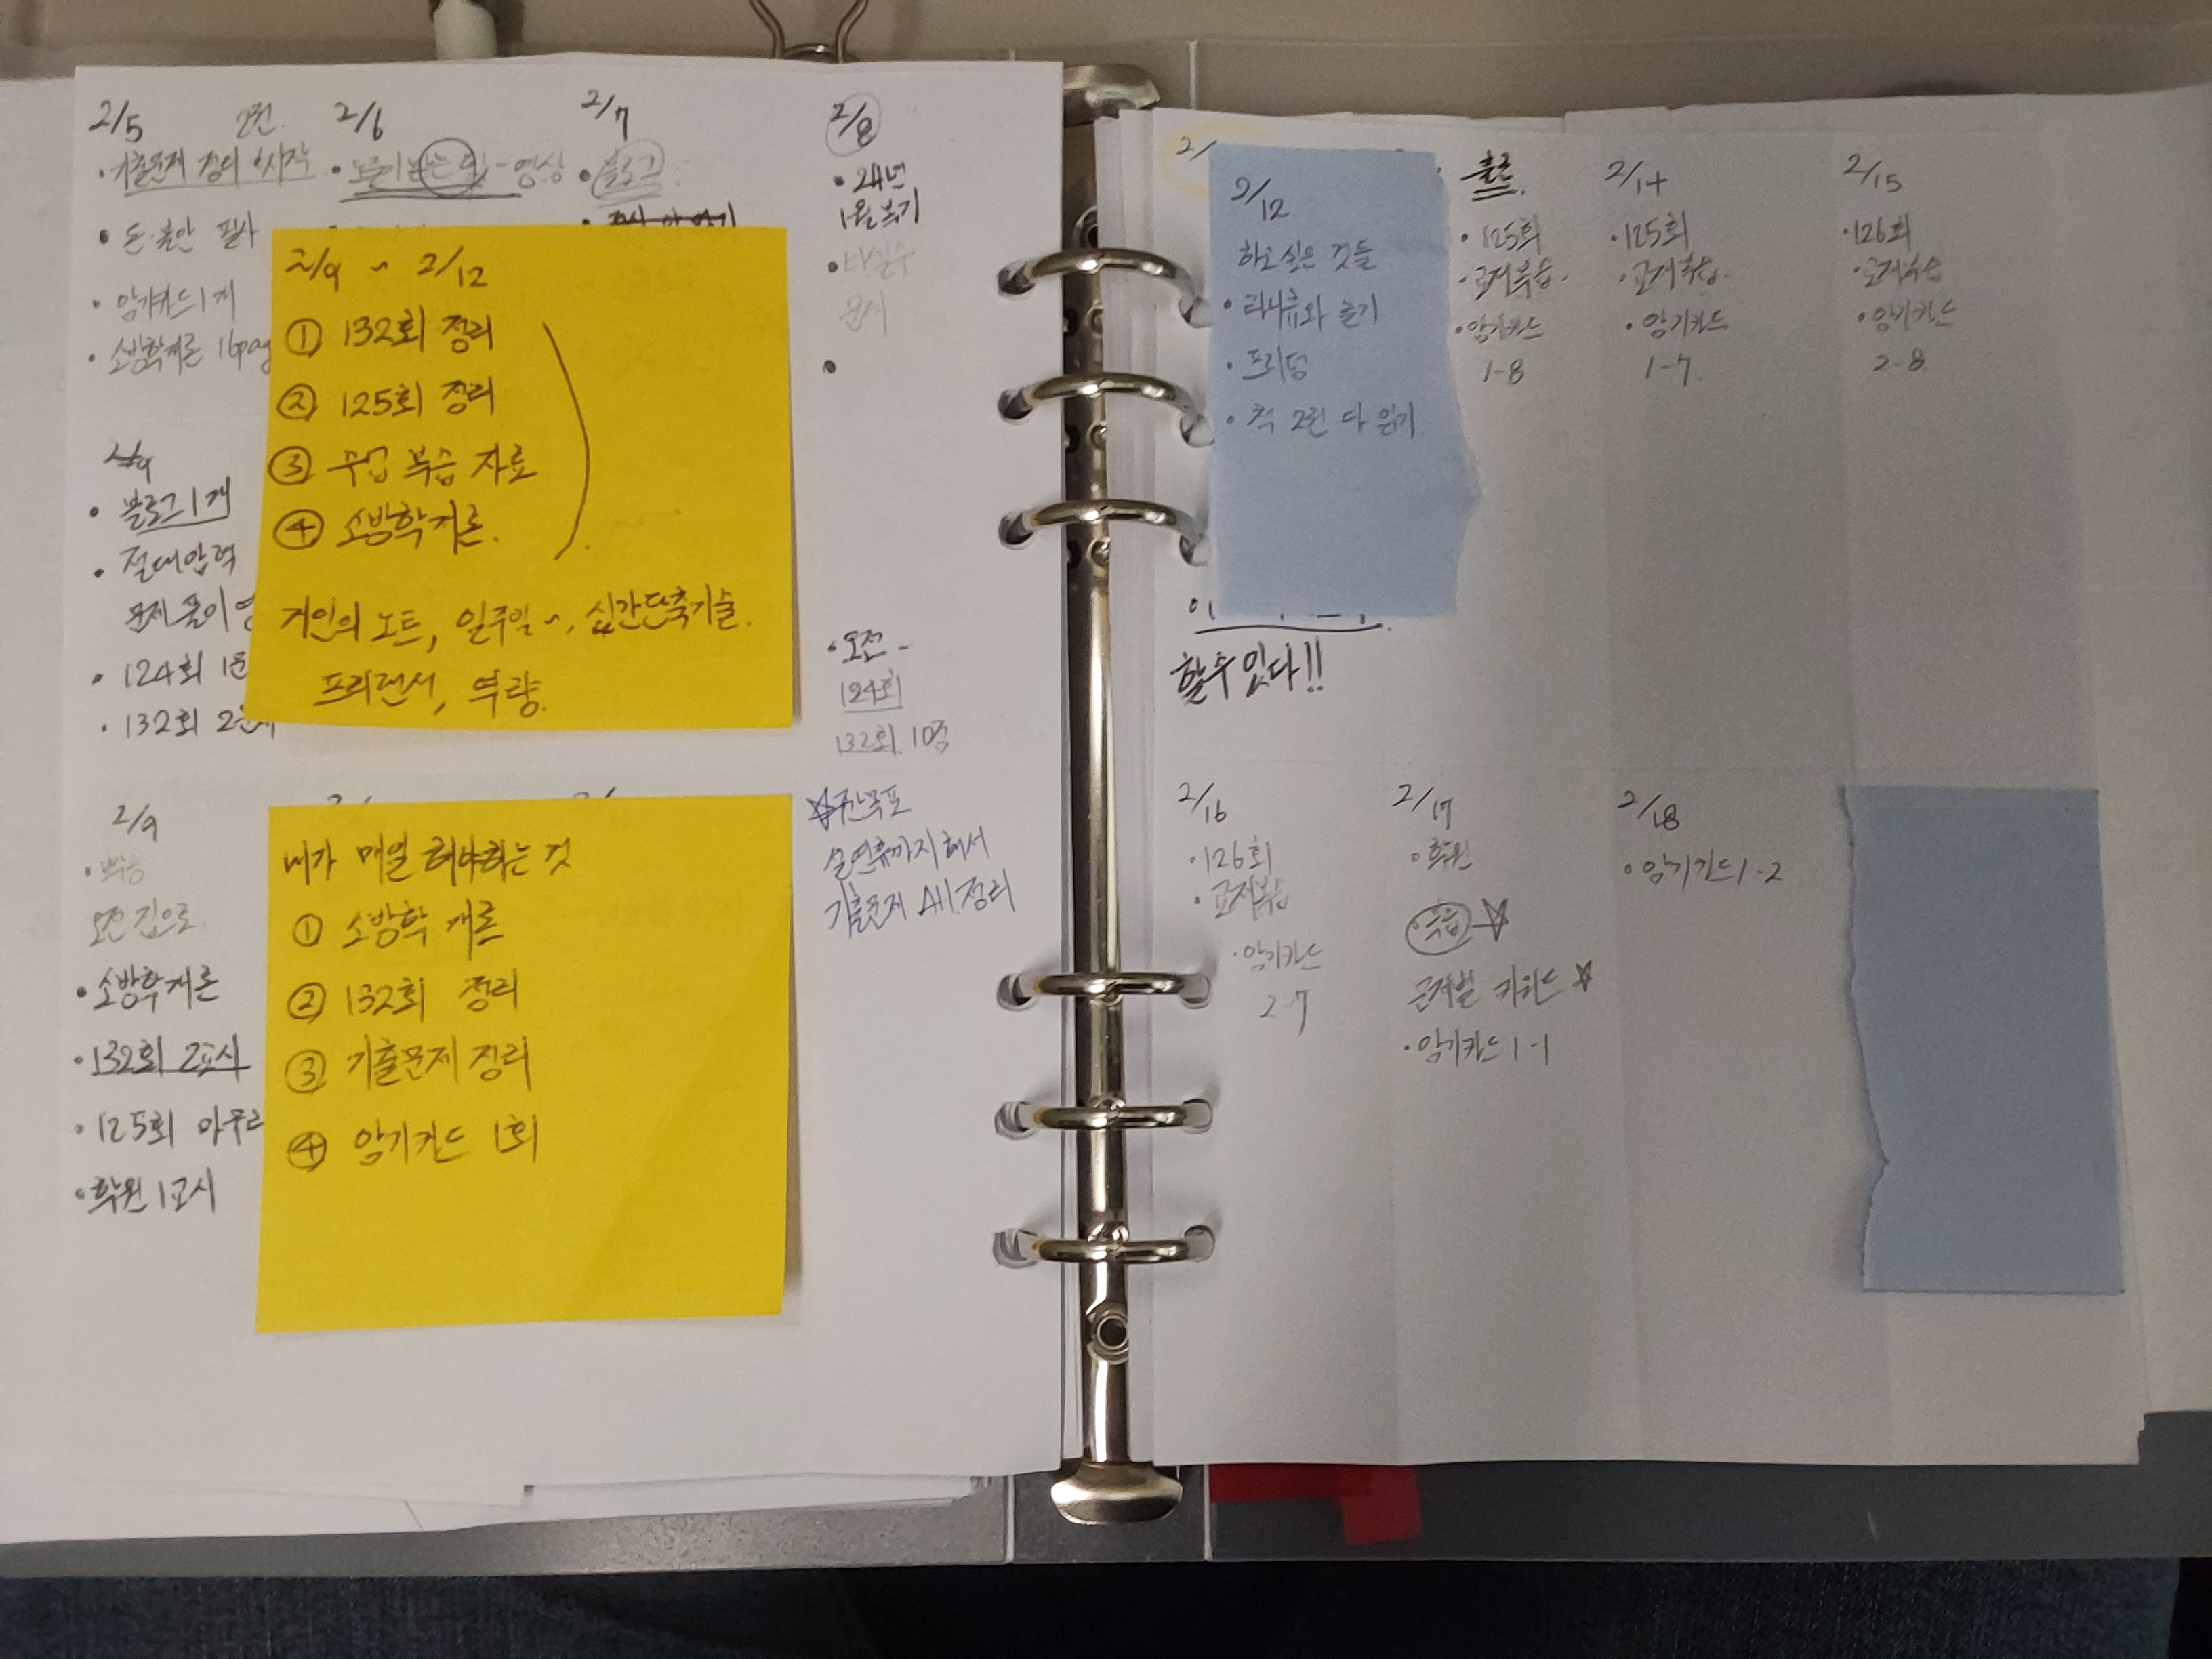 2/5
2/6
2/7
2/8
• 기출문제 정리 시작
• 돈·불안 필사
• 암기카드 1개
• 소방학개론 16pag
- 영상
• 블로그
• 24년
1월 복기
문제
•
2/9 ~ 2/12
① 132회 정리
② 125회 정리
③ 수업 복습 자료
④ 소방학개론.
거인의 노트, 일주일~, 시간단축기술.
프리랜서, 역량.
2/9
• 블로그 1개
• 절대압력
문제 풀이 영
• 124회 1문
• 132회 2문제
• 오전 -
124회
132회. 10점
2/9
오전 집으로
• 소방학개론
• 132회 2교시
• 125회 마무리
• 학원 1교시
내가 매일 해야하는 것
① 소방학 개론
② 132회 정리
③ 기출문제 정리
④ 암기카드 1회
☆주간목표
설연휴까지 해서
기출문제 All 정리
2/
2/12
하고 싶은 것들
• 티나휴와 놀기
• 프리덤
• 책 2권 다 읽기.
할 수 있다!!
출근.
• 125회
• 교재복습.
• 암기카드
1-8
2/14
• 125회
• 교재복습.
• 암기카드
1-7.
2/15
• 126회
• 교재복습
• 암기카드
2-8
2/16
• 126회
• 교재복습
• 암기카드
2-7
2/17
• 학원
• 복습 ☆
문제별 키워드 ☆
• 암기카드 1-1
2/18
• 암기카드 1-2